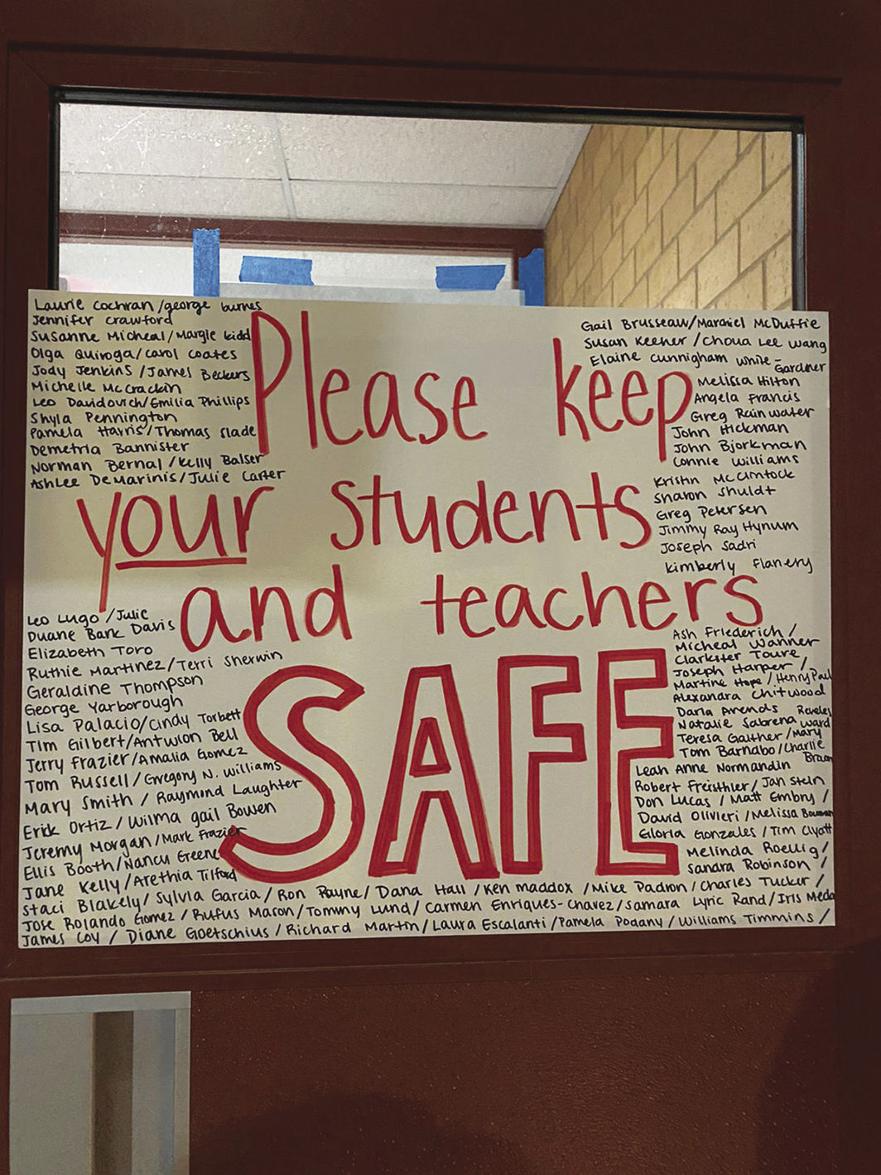 Laurie Cochran/george burnes
Jennifer Crawford
Susanne Micheal/Margie kidd
Olga Quiroga/carol coates
Jody Jenkins/James Beckers
Michelle McCrackin
Leo Davidovich/Emilia Phillips
Shyla Pennington
Pamela Harris/Thomas Slade
Demetria Bannister
Norman Bernal/Kelly Balser
AshLee DeMarinis/Julie Carter
Gail Brusseau/Mardriel McDuffie
Susan Keener/Choua Lee Wang
Elaine Cunnigham White-
Gardner
Melissa Hilton
Angela Francis
Greg Rainwater
John Hickman
John Bjorkman
Connie Williams
Kristin
Sharon Shuldt
Greg Petersen
Jimmy Ray Hynum
Joseph Sadri
Kimberly Flanery
Please keep
your students
and teachers
SAFE
Leo Lugo/Julie
Duane Bank Davis
Elizabeth Toro
Ruthie Martinez/Terri Sherwin
Geraldine Thompson
George Yarborough
Lisa Palacio/Cindy Torbett
Tim Gilbert/Antwion Bell
Jerry Frazier/Amalia Gomez
Tom Russell/Gregory N. Williams
Mary Smith / Raymond Laughter
Erik Ortiz/Wilma gail Bowen
Jeremy Morgan/Mark Frazier
Ellis Booth/Nancy Greene
Jane Kelly/Arethia Tilford
Ash Friederich/
Micheal Wanner
Clarkster Toure
Joseph Harper/
Martine Hope/Henry Paul
Alexandra Chitwood
Darla Arends
Natalie Sabrena Ward
Teresa Gaither/Mary
Tom Barnabo/Charlie
Leah Anne Normandin
Robert Freisthler/Jan Stein
Don Lucas / Matt Embry /
David Olivieri /Melissa Bowman
Gloria Gonzales / Tim
Melinda Roellig/
Sandra Robinson /
Staci Blakely/ Sylvia Garcia/ Ron Payne/ Dana Hall /Ken maddox /Mike Padron/Charles Tucker/
Jose Rolando Gomez/Rufus Mason/Tommy Lund/ Carmen Enriques-Chavez/Samara Lyric Rand/Iris Meda
James Coy / Diane Goetschius/Richard Martin/Laura Escalanti/Pamela Podany/Williams Timmins/